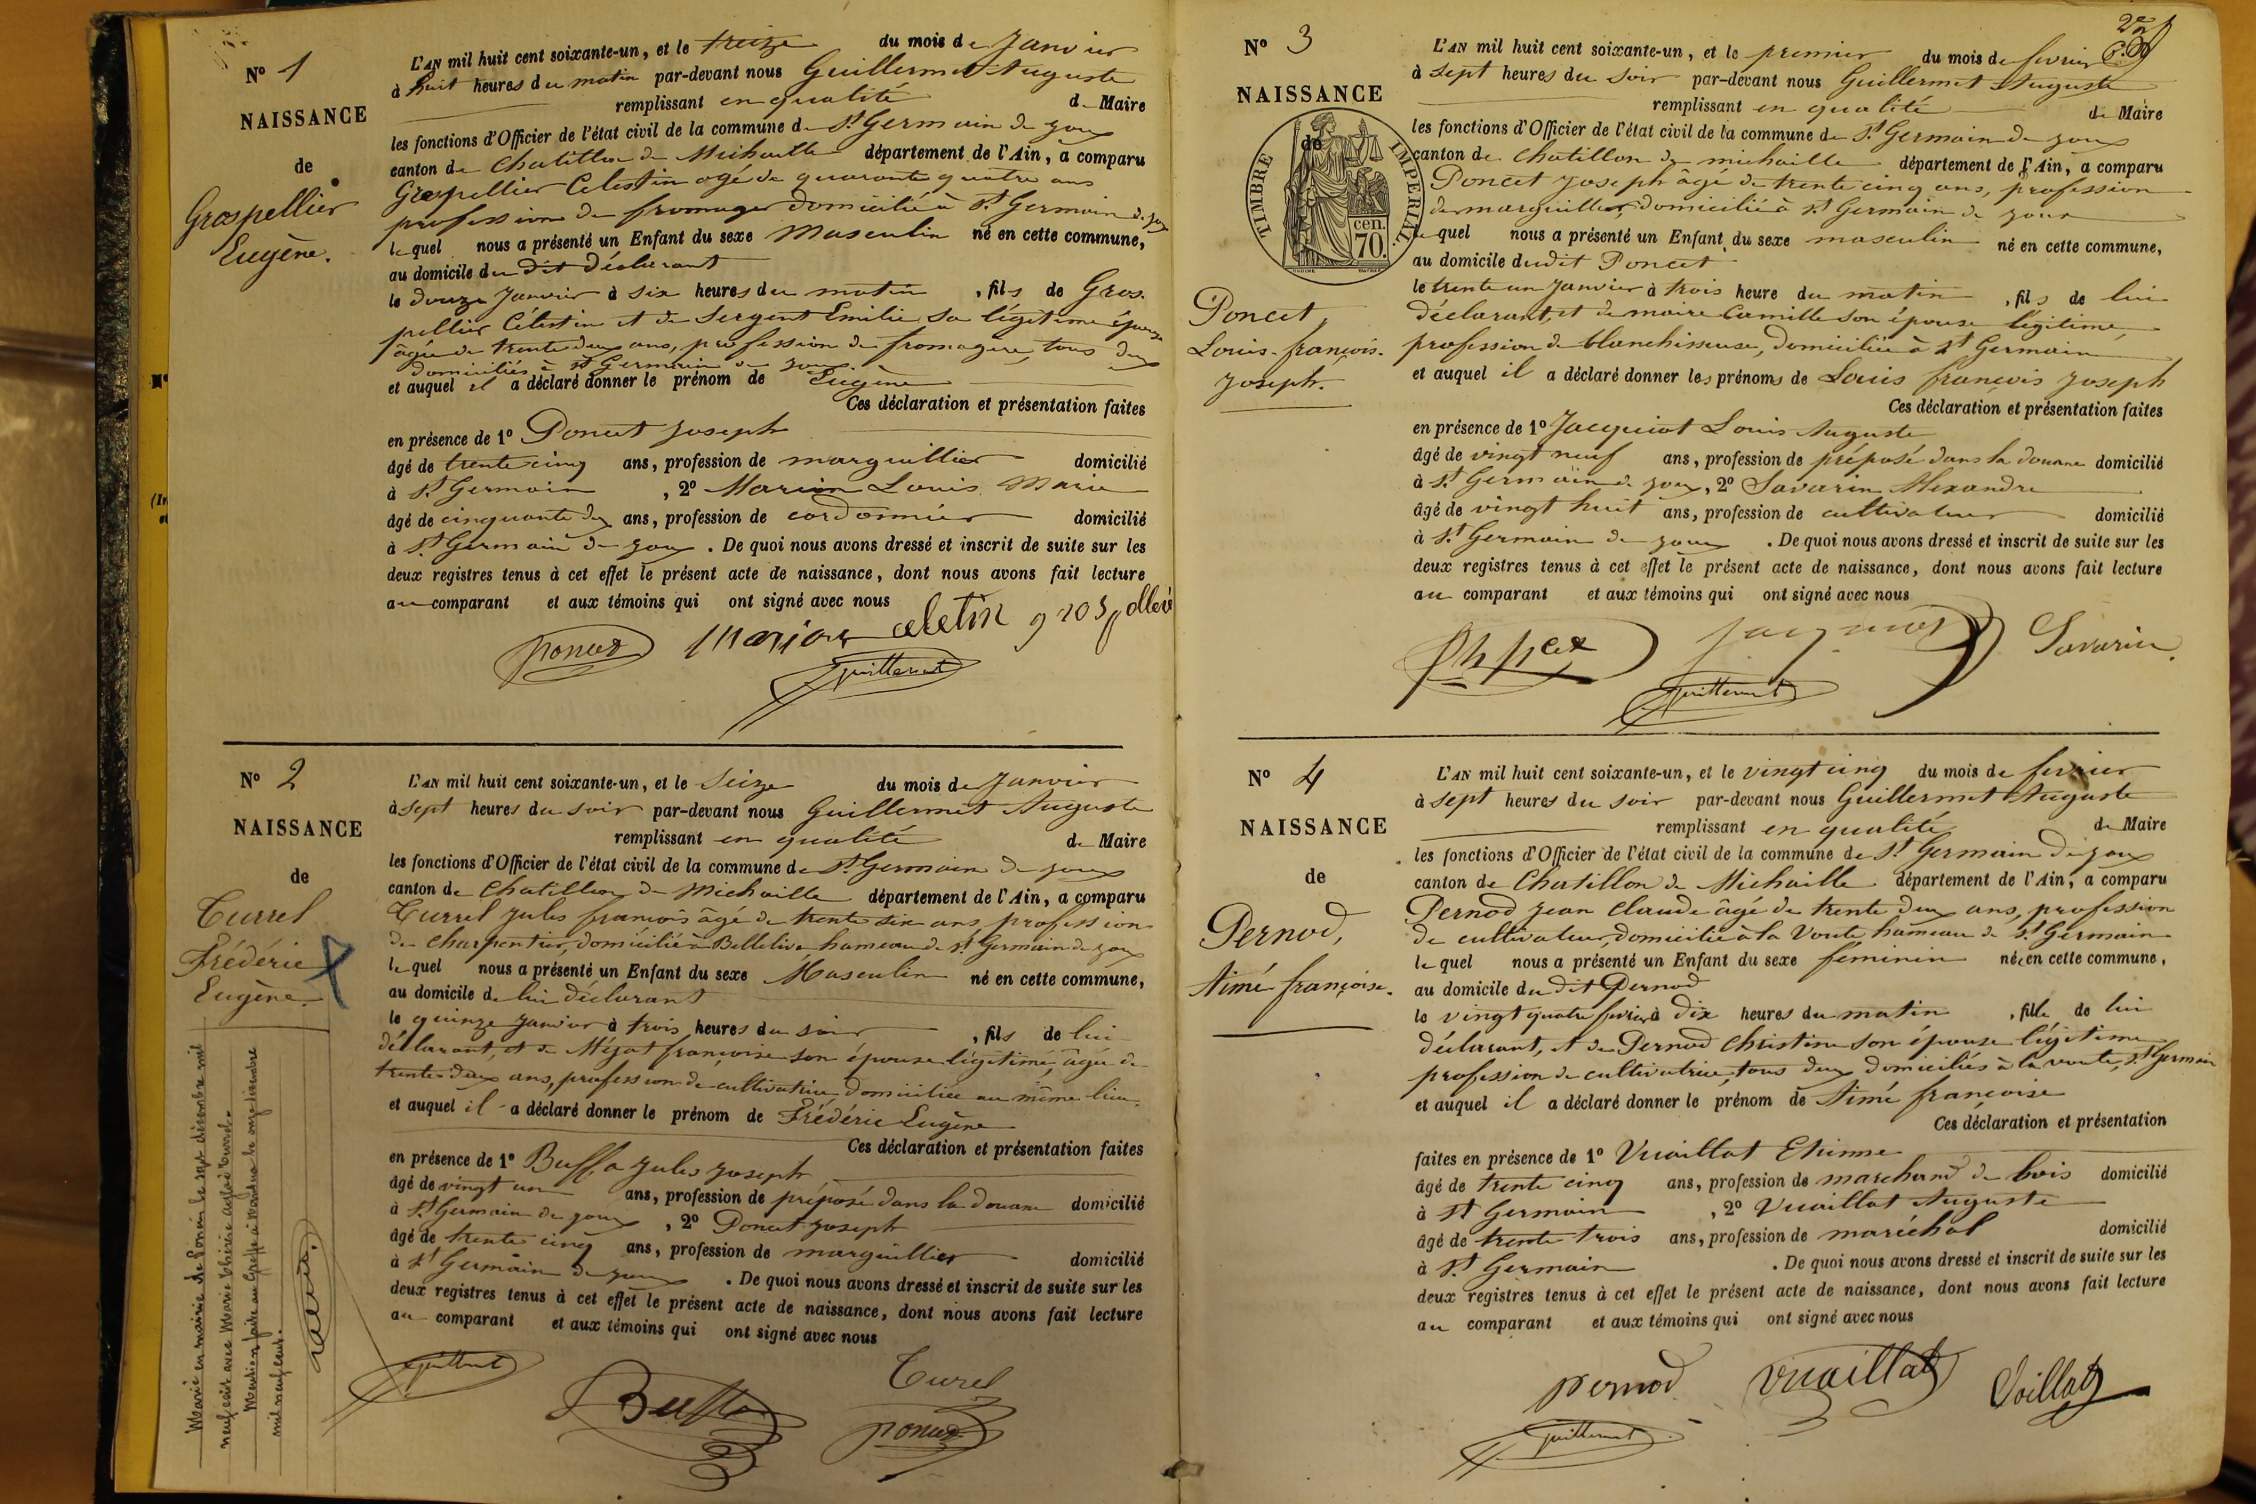 N° 1
NAISSANCE
de
Grospellier
Eugène.
L'AN mil huit cent soixante-un, et le treize du mois de Janvier
à huit heures du matin par-devant nous Guillermet Auguste
remplissant en qualité de Maire
les fonctions d'Officier de l'état civil de la commune de St Germain de joux
canton de Chatillon de Michaille département de l'Ain, a comparu
Grospellier Celestin agé de quarante quatre ans
profession de fromager domicilié à St Germain de joux
lequel nous a présenté un Enfant du sexe Masculin né en cette commune,
au domicile du dit Déclarant
le douze Janvier à six heures du matin, fils de Gros-
pellier Célestin et de Sergent Emilie sa légitime épouse
âgée de trente deux ans, profession de fromagère, tous deux
domiciliés à St Germain de joux.
et auquel il a déclaré donner le prénom de Eugène
Ces déclaration et présentation faites
en présence de 1° Poncet Joseph
âgé de trente cinq ans, profession de marguillier domicilié
à St Germain, 2° Marion Louis Marie
âgé de cinquante deux ans, profession de cordonnier domicilié
à St Germain de joux. De quoi nous avons dressé et inscrit de suite sur les
deux registres tenus à cet effet le présent acte de naissance, dont nous avons fait lecture
au comparant et aux témoins qui ont signé avec nous
poncet marion celetin
Guillermet
N° 2
NAISSANCE
de
Turrel
Frédéric
Eugène.
Marié en mairie de le sept décembre mil
neuf cent avec Marie
L'AN mil huit cent soixante-un, et le Seize du mois de Janvier
à sept heures du soir par-devant nous Guillermet Auguste
remplissant en qualité de Maire
les fonctions d'Officier de l'état civil de la commune de St Germain de joux
canton de Chatillon de Michaille département de l'Ain, a comparu
Turrel Jules françois âgé de trente six ans, profession
de charpentier, domicilié à Bellelive hameau de St Germain de joux
lequel nous a présenté un Enfant du sexe Masculin né en cette commune,
au domicile de lui déclarant
le quinze Janvier à trois heures du soir, fils de lui
déclarant, et de Mégat françoise son épouse légitime, âgée de
trente deux ans, profession de cultivatrice, domiciliée au même lieu.
et auquel il a déclaré donner le prénom de Frédéric Eugène
Ces déclaration et présentation faites
en présence de 1° Buffa Jules Joseph
âgé de vingt un ans, profession de préposé dans la douane domicilié
à St Germain de joux, 2° Poncet Joseph
âgé de trente cinq ans, profession de marguillier domicilié
à St Germain de joux. De quoi nous avons dressé et inscrit de suite sur les
deux registres tenus à cet effet le présent acte de naissance, dont nous avons fait lecture
au comparant et aux témoins qui ont signé avec nous
Guillermet Turel
Buffa poncet
N° 3
NAISSANCE
de
TIMBRE IMPERIAL.
cen.
70.
Poncet,
Louis-françois-
Joseph.
L'AN mil huit cent soixante-un, et le premier du mois de fevrier
à sept heures du soir par-devant nous Guillermet Auguste
remplissant en qualité de Maire
les fonctions d'Officier de l'état civil de la commune de St Germain de joux
canton de Chatillon de michaille département de l'Ain, a comparu
Poncet Joseph âgé de trente cinq ans, profession
de marguillier, domicilié à St Germain de joux
lequel nous a présenté un Enfant du sexe masculin né en cette commune,
au domicile dudit Poncet
le trente un Janvier à trois heure du matin, fils de lui
déclarant, et de maire Camille son épouse légitime,
profession de blanchisseuse, domiciliée à St Germain
et auquel il a déclaré donner les prénoms de Louis françois Joseph
Ces déclaration et présentation faites
en présence de 1° Jacquiot Louis Auguste
âgé de vingt neuf ans, profession de préposé dans la douane domicilié
à St Germain de joux, 2° Savarin Alexandre
âgé de vingt huit ans, profession de cultivateur domicilié
à St Germain de joux. De quoi nous avons dressé et inscrit de suite sur les
deux registres tenus à cet effet le présent acte de naissance, dont nous avons fait lecture
au comparant et aux témoins qui ont signé avec nous
Savarin.
Guillermet
N° 4
NAISSANCE
de
Pernod,
Aimé françoise.
L'AN mil huit cent soixante-un, et le vingt cinq du mois de fevrier
à sept heures du soir par-devant nous Guillermet Auguste
remplissant en qualité de Maire
les fonctions d'Officier de l'état civil de la commune de St Germain de joux
canton de Chatillon de Michaille département de l'Ain, a comparu
Pernod Jean Claude âgé de trente deux ans, profession
de cultivateur, domicilié à la Voute hameau de St Germain
lequel nous a présenté un Enfant du sexe féminin née en cette commune,
au domicile du dit Pernod
le vingt quatre fevrier à dix heures du matin, fille de lui
déclarant, et de Pernod Christine son épouse légitime
profession de cultivatrice, tous deux domiciliés à la voute, St Germain
et auquel il a déclaré donner le prénom de Aimé françoise
Ces déclaration et présentation
faites en présence de 1° Vuaillat Etienne
âgé de trente cinq ans, profession de marchand de bois domicilié
à St Germain, 2° Vuaillat Auguste
âgé de trente trois ans, profession de maréchal domicilié
à St Germain. De quoi nous avons dressé et inscrit de suite sur les
deux registres tenus à cet effet le présent acte de naissance, dont nous avons fait lecture
au comparant et aux témoins qui ont signé avec nous
pernod vuaillat Voillat
Guillermet